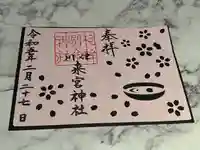 奉拝
来宮神社
令和五年二月二十七日